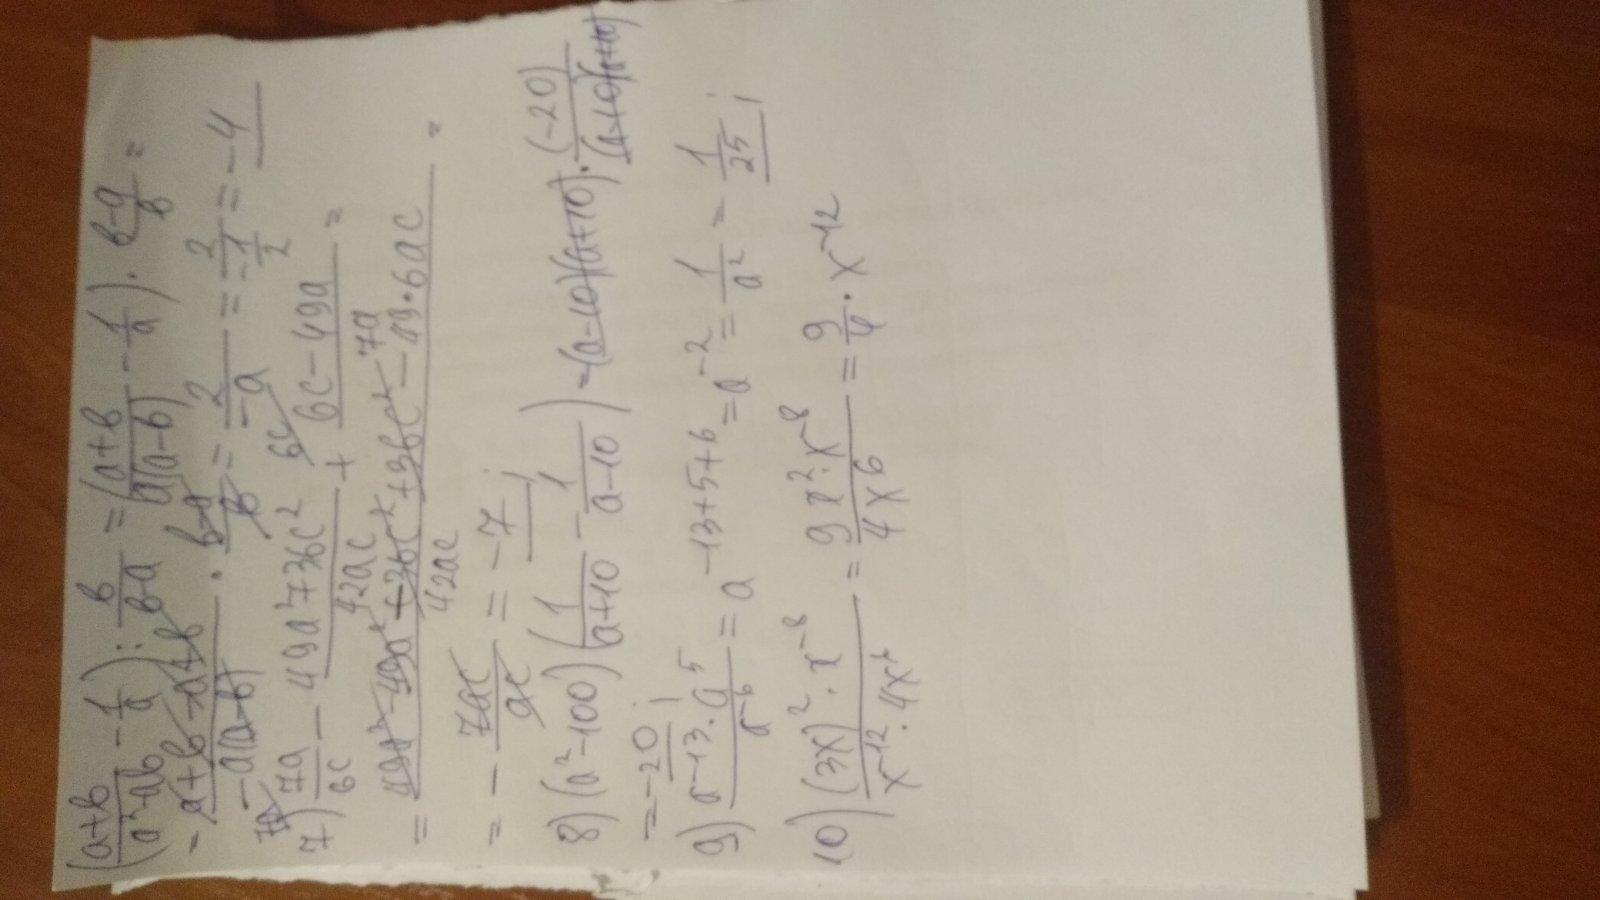 (a+b/a²-ab - 1/a) : b/b-a = (a+b/a(a-b) - 1/a) · b-a/b =
= a+b-a+b/a(a-b) · b-a/b = 2/-a = 2/-1/2 = -4
7) 7a/6c - 49a²+36c²/42ac + 6c-49a/7a =
= 49a²-49a²-36c²+36c²-49·6ac/42ac =
= - 7ac/ac = -7;
8) (a²-100)(1/a+10 - 1/a-10) = (a-10)(a+10) · (-20)/(a-10)(a+10)
= -20;
9) a-13 · a⁵/a⁻⁶ = a⁻¹³⁺⁵⁺⁶ = a⁻² = 1/a² = 1/25;
10) (3x)² · x⁻⁸/x⁻¹² · 4x⁶ = 9x² · x⁻⁸/4x⁶ = 9/4 · x⁻¹²